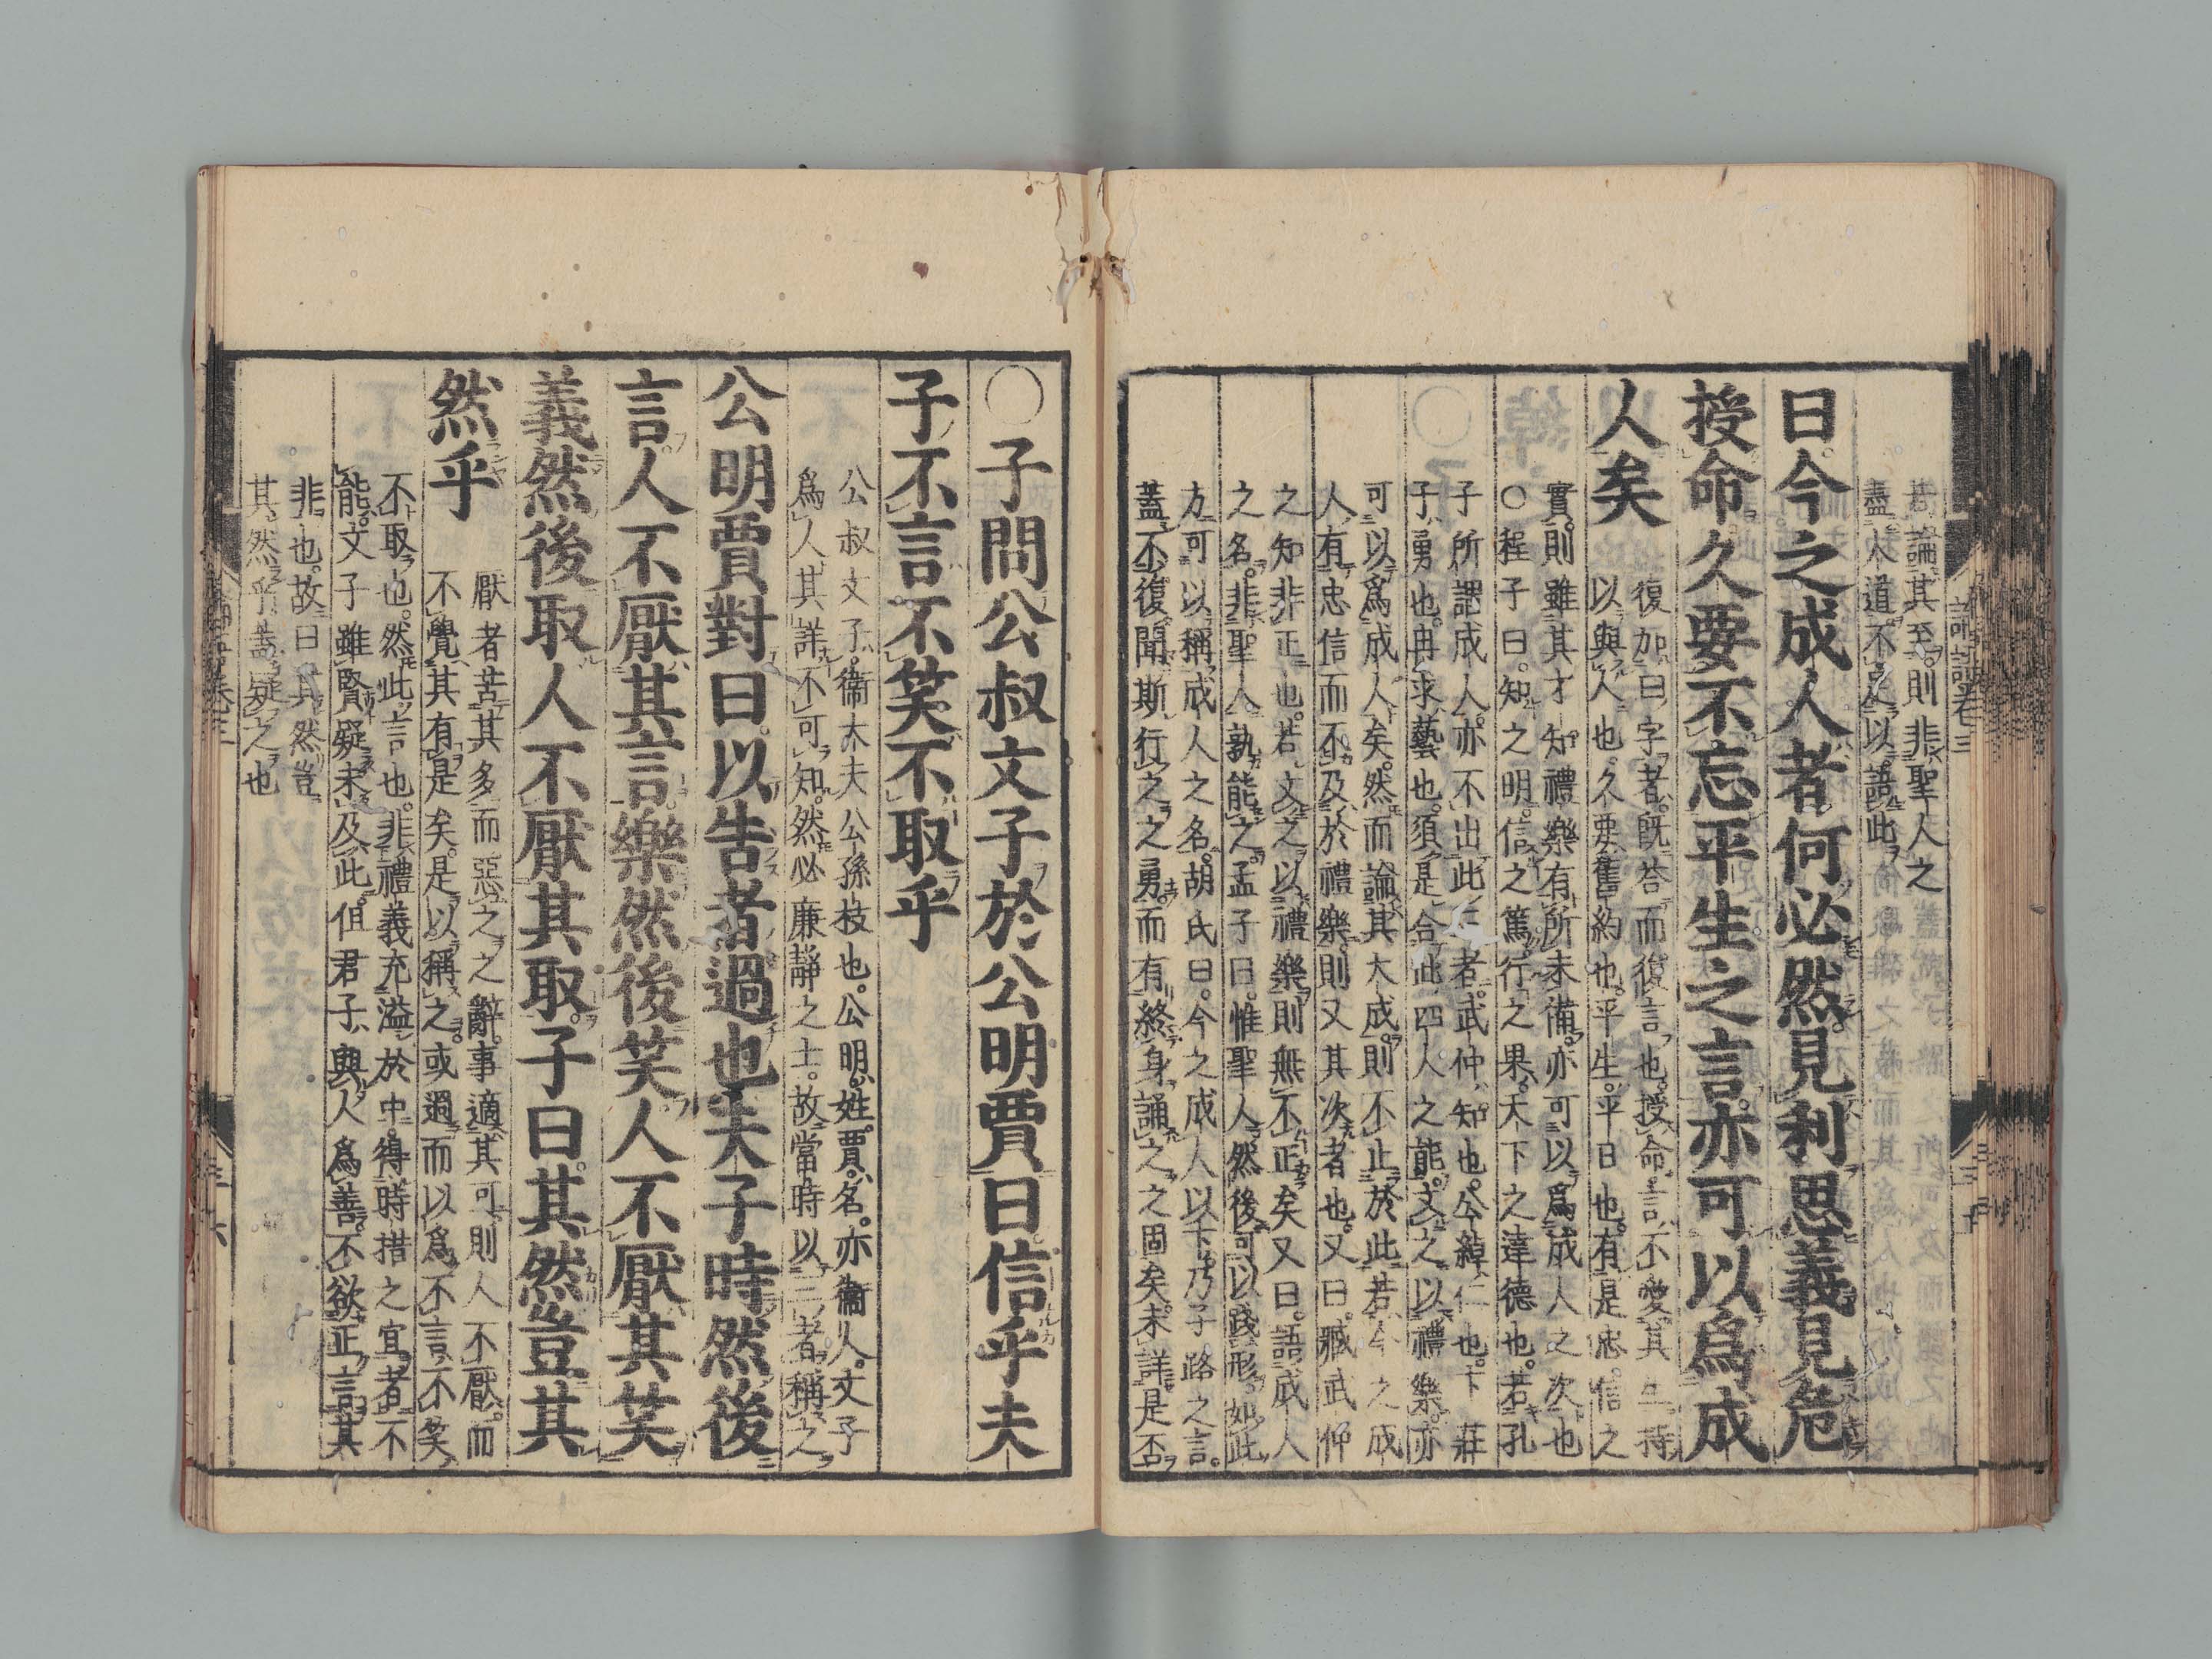 若論其至則非聖人之
盡人道不足以語此
曰今之成人者何必然見利思義見危
授命久要不忘平生之言亦可以爲成
人矣
復加曰字者既答而復言也授命言不愛其生持
以與人也久要舊約也平生平日也有是忠信之
實則雖其才知禮樂有所未備亦可以爲成人之次也
○程子曰知之明信之篤行之果天下之達德也若孔
子所謂成人亦不出此三者武仲知也公綽仁也卞莊
子勇也冉求藝也須是合此四人之能文之以禮樂亦
可以爲成人矣然而論其大成則不止於此若今之成
人有忠信而不及於禮樂則又其次者也又曰臧武仲
之知非正也若文之以禮樂則無不正矣又曰語成人
之名非聖人孰能之孟子曰惟聖人然後可以踐形如此
方可以稱成人之名胡氏曰今之成人以下乃子路之言
蓋不復聞斯行之之勇而有終身誦之之固矣未詳是否
○子問公叔文子於公明賈曰信乎夫
子不言不笑不取乎
公叔文子衞大夫公孫枝也公明姓賈名亦衞人文子
爲人其詳不可知然必廉靜之士故當時以三者稱之
公明賈對曰以告者過也夫子時然後
言人不厭其言樂然後笑人不厭其笑
義然後取人不厭其取子曰其然豈其
然乎
厭者苦其多而惡之之辭事適其可則人不厭而
不覺其有是矣是以稱之或過而以爲不言不笑
不取也然此言也非禮義充溢於中得時措之宜者不
能文子雖賢疑未及此但君子與人爲善不欲正言其
非也故曰其然豈
其然乎蓋疑之也